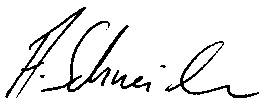 A. Schneider